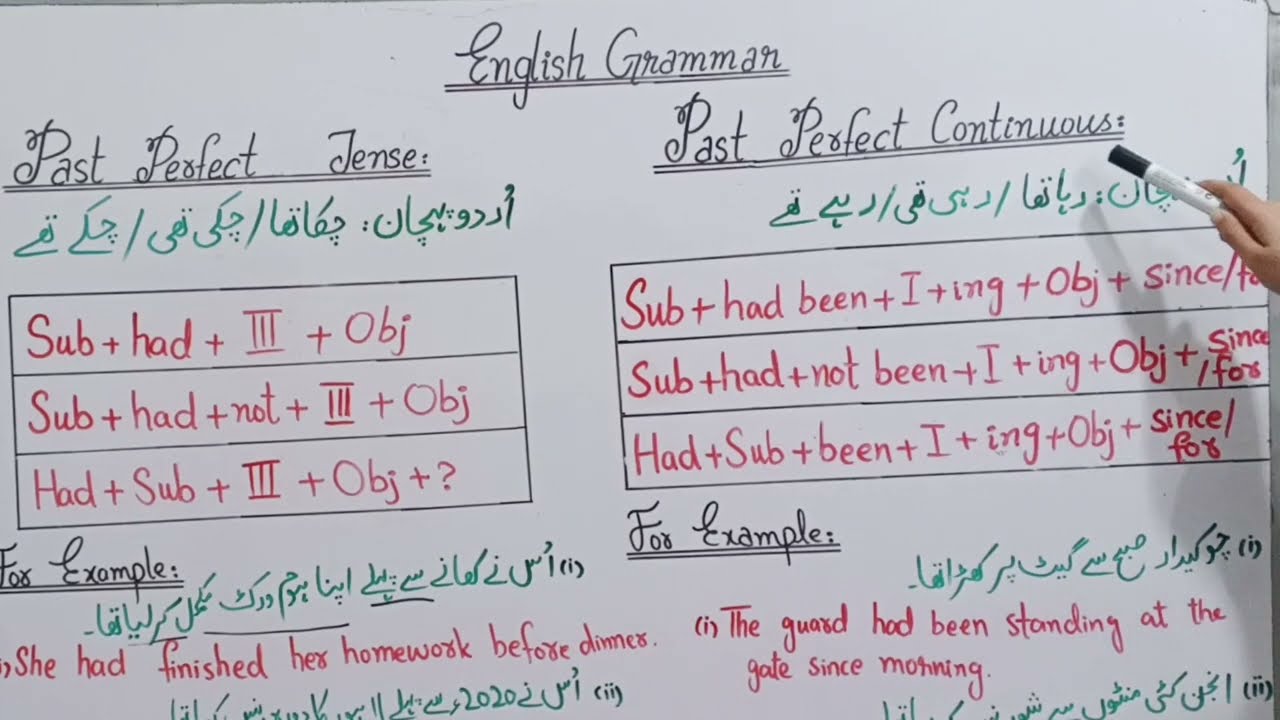 English Grammar
Past Perfect Tense:
اُردو پہچان: چکا تھا/چکی تھی/چکے تھے
Sub + had + III + Obj
Sub + had + not + III + Obj
Had + Sub + III + Obj + ?
For Example:
(i) اُس نے کھانے سے پہلے اپنا ہوم ورک
مکمل کر لیا تھا۔
She had finished her homework before dinner.
(ii) اُس نے 2020ء سے پہلے لاہور کا دورہ نہیں کیا تھا
Past Perfect Continuous:
پہچان: رہا تھا/رہی تھی/رہے تھے
Sub + had been + I + ing + Obj + since/fo
Sub + had + not been + I + ing + Obj + since
/for
Had + Sub + been + I + ing + Obj + since/
for
For Example:
(i) چوکیدار صبح سے گیٹ پر کھڑا تھا۔
(i) The guard had been standing at the
gate since morning.
(ii) انجن کئی منٹوں سے شور